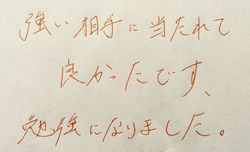 強い相手に当たれて
良かったです、
勉強になりました。